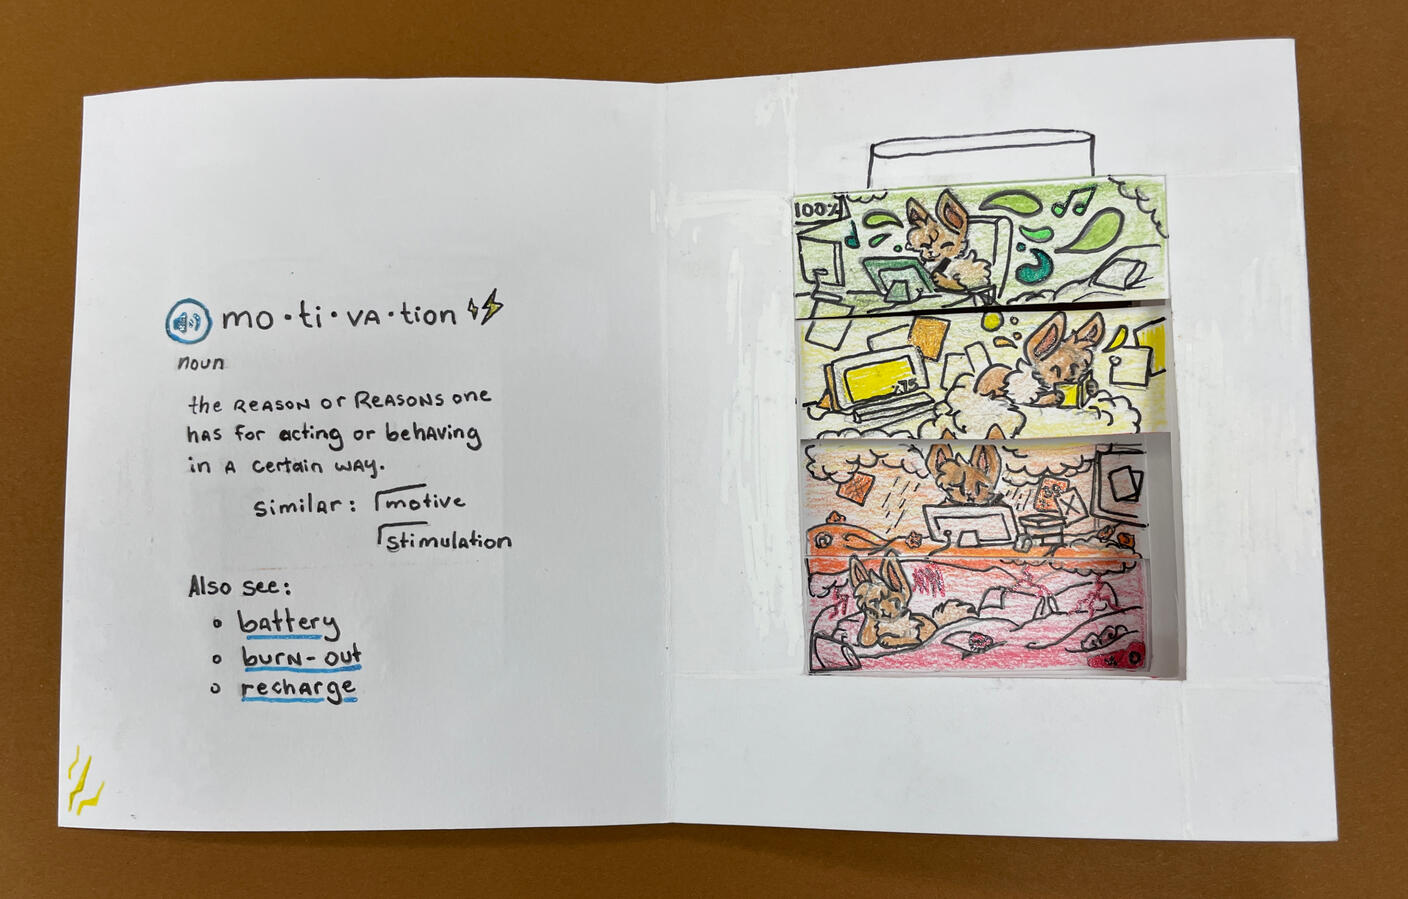 mo·ti·va·tion
noun
the REASON or REASONS one
has for acting or behaving
in a certain way.
similar: motive
stimulation
Also see:
battery
burn-out
recharge
100%
%75